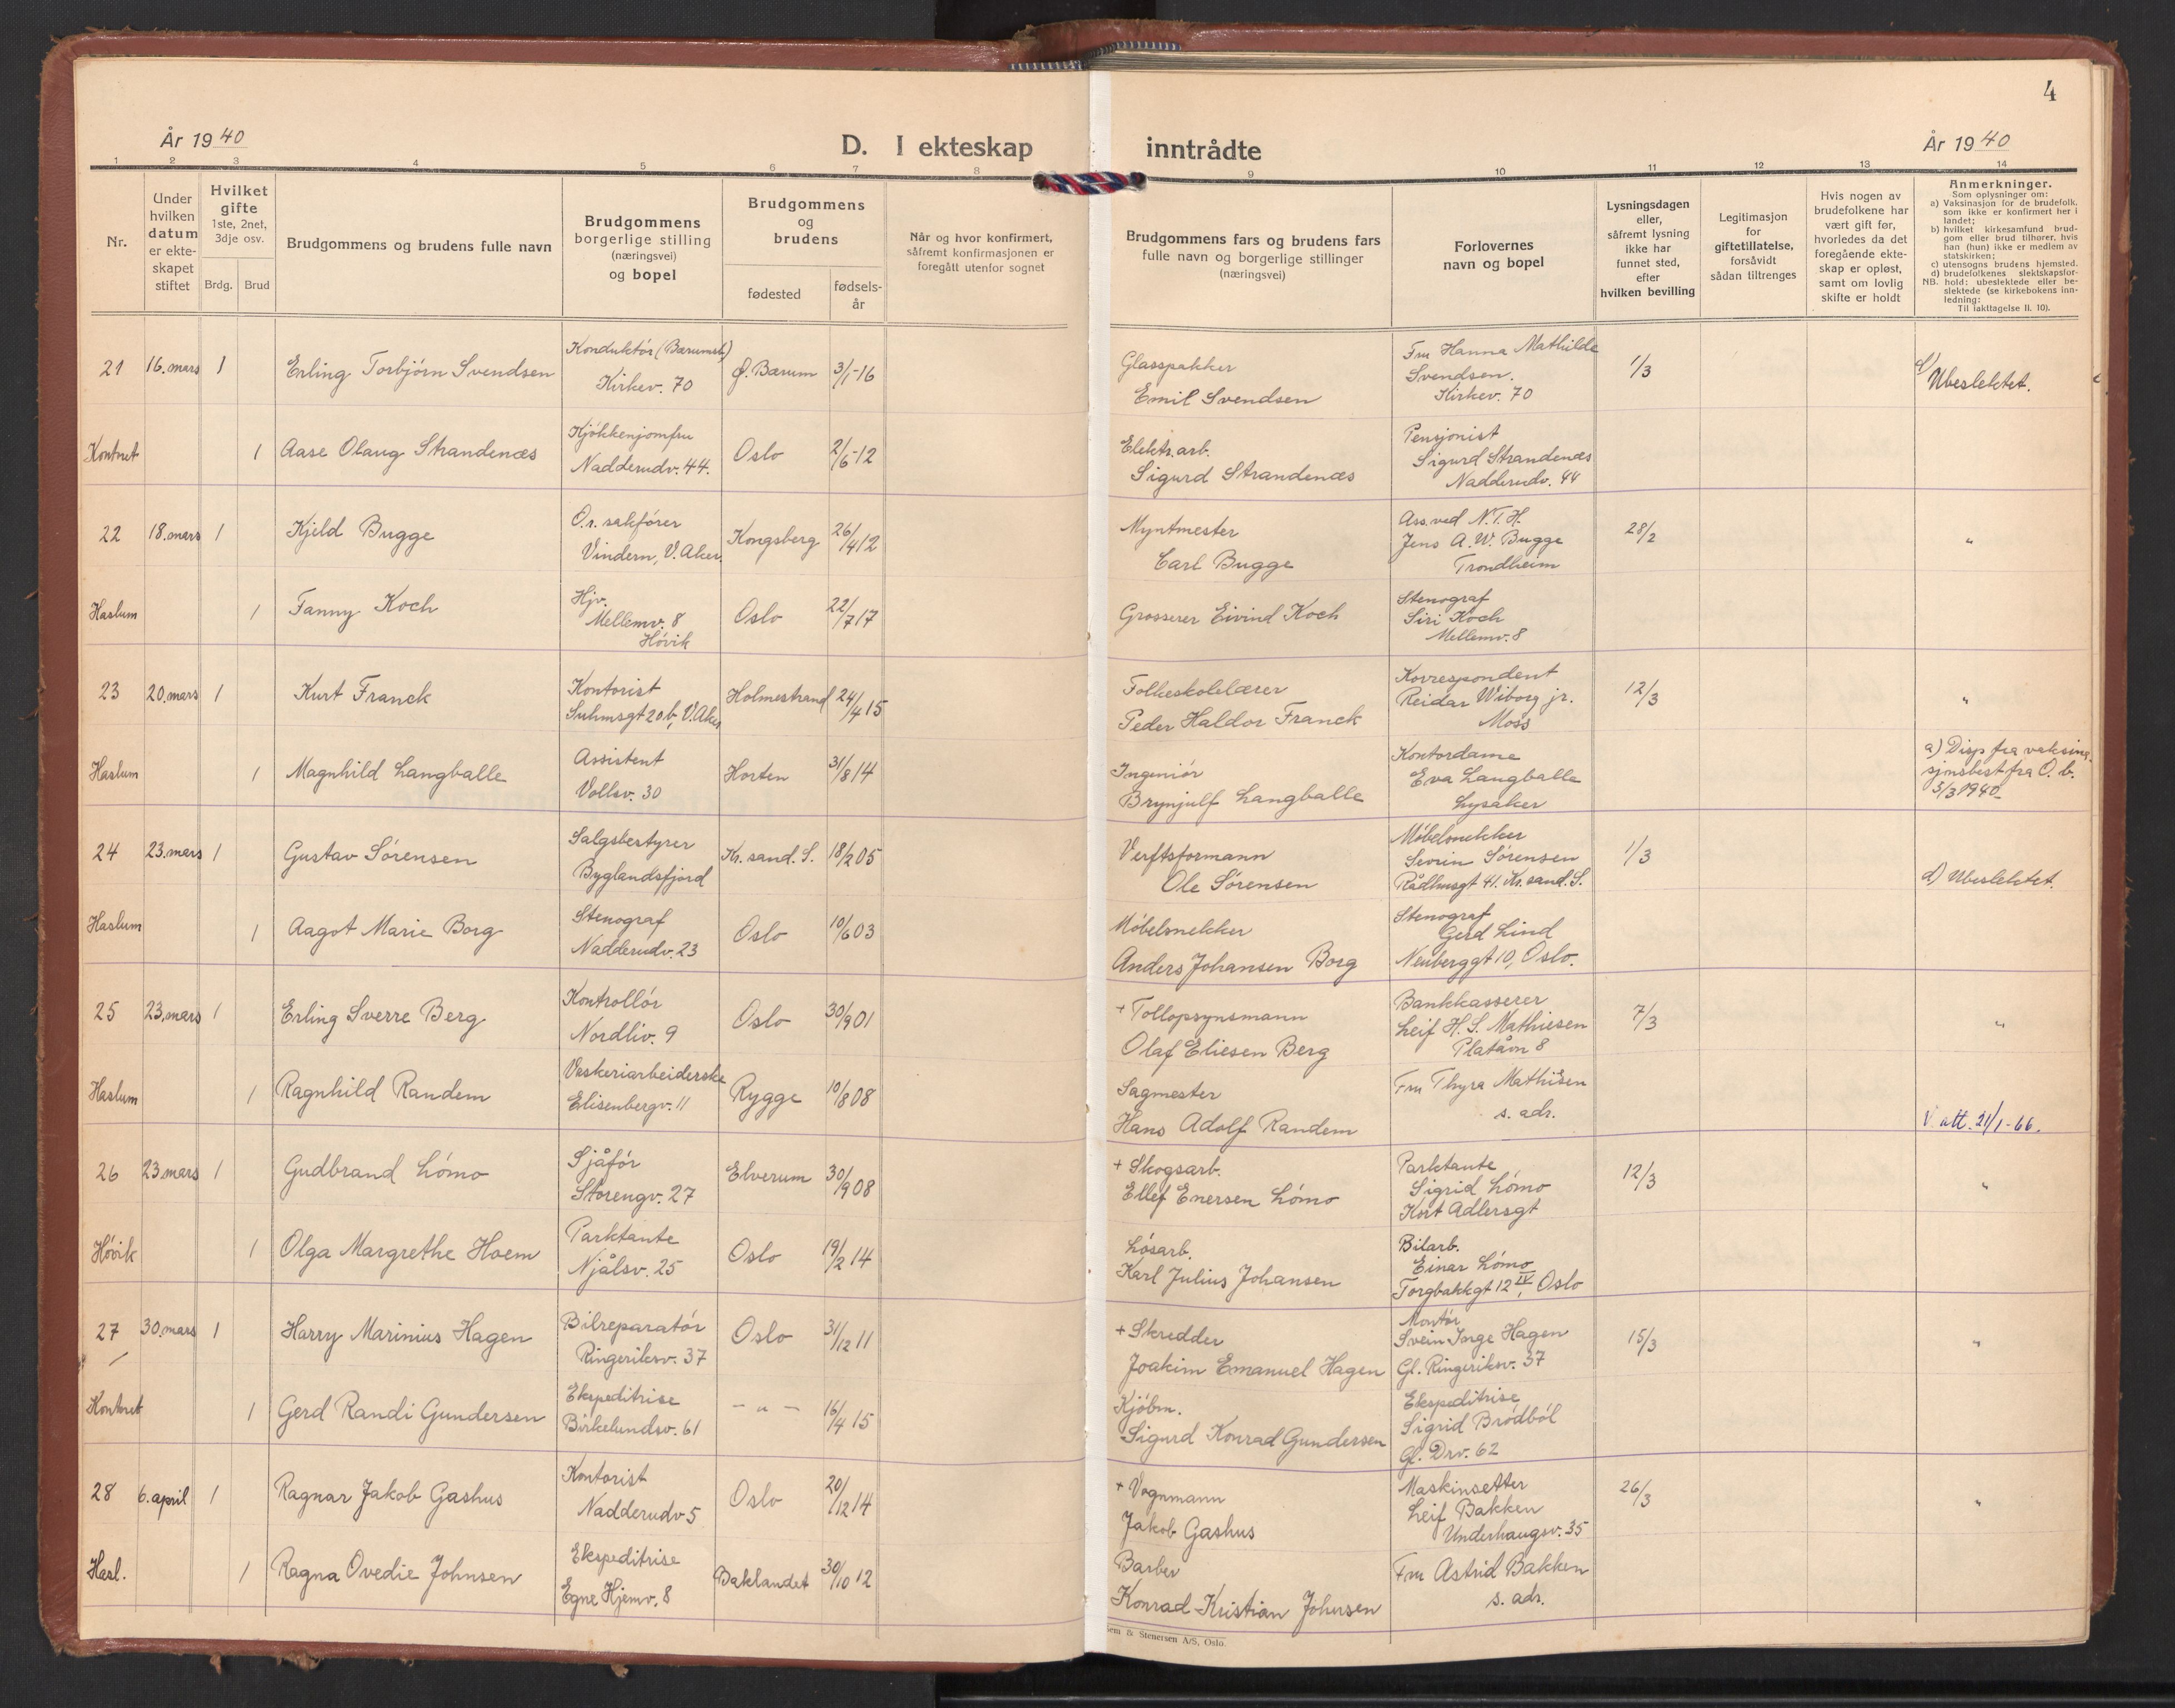 4
År 1940
D. I ekteskap inntrådte
År 1940
1 2 3 4 5 6 7 8 9 10 11 12 13 14
Nr.
Under
hvilken
datum
er ekte-
skapet
stiftet
Hvilket
gifte
1ste, 2net,
3dje osv.
Brdg. Brud
Brudgommens og brudens fulle navn
Brudgommens
borgerlige stilling
(næringsvei)
og bopel
Brudgommens
og
brudens
fødested
fødsels-
år
Når og hvor konfirmert,
såfremt konfirmasjonen er
foregått utenfor sognet
Brudgommens fars og brudens fars
fulle navn og borgerlige stillinger
(næringsvei)
Forlovernes
navn og bopel
Lysningsdagen
eller,
såfremt lysning
ikke har
funnet sted,
efter
hvilken bevilling
Legitimasjon
for
giftetillatelse,
forsåvidt
sådan tiltrenges
Hvis nogen av
brudefolkene har
vært gift før,
hvorledes da det
foregående ekte-
skap er opløst,
samt om lovlig
skifte er holdt
Anmerkninger.
Som oplysninger om:
a) Vaksinasjon for de brudefolk,
som ikke er konfirmert her i
landet;
b) hvilket kirkesamfund brud-
gom eller brud tilhører, hvis
han (hun) ikke er medlem av
statskirken;
c) utensogns brudens hjemsted.
d) brudefolkenes slektskapsfor-
NB. hold: ubeslektede eller be-
slektede (se kirkebokens inn-
ledning:
Til iakttagelse II. 10).
21 16. mars 1 Erling Torbjørn Svendsen
Konduktør (Bærumsb.)
Kirkev. 70
Ø. Bærum 3/1-16
Glasspakker
Emil Svendsen
Fru Hanna Mathilde
Svendsen.
Kirkev. 70
1/3
d) Ubeslektet.
Kontret 1 Aase Olaug Strandenæs
Kjøkkenjomfru
Nadderudv. 44.
Oslo 2/6-12
Elektr. arb.
Sigurd Strandenæs
Pensjonist
Sigurd Strandenæs
Nadderudv. 44
22 18. mars 1 Kjeld Bugge
O.r. sakfører
Vindern, V. Aker
Kongsberg 26/4 12
Myntmester
Carl Bugge
Ass. ved N.T.H.
Jens A. W. Bugge
Trondheim
28/2 "
Haslum 1 Fanny Koch
Hjv.
Mellemv. 8
Høvik
Oslo 22/7 17
Grosserer Eivind Koch
Stenograf
Siri Koch
Mellemv. 8
23 20. mars 1 Kurt Franck
Kontorist
Suhmsgt 20 b, V. Aker
Holmestrand 24/4 15
Folkeskolelærer
Peder Haldor Franck
Korrespondent
Reidar Wiborg jr.
Moss
12/3 "
Haslum 1 Magnhild Langballe
Assistent
Vollsv. 30
Horten 31/8 14
Ingeniør
Brynjulf Langballe
Kontordame
Eva Langballe
Lysaker
a) Disp fra vaksina-
sjonsbest fra O. b.
5/3 1940
24 23. mars 1 Gustav Sørensen
Salgsbestyrer
Byglandsfjord
Kr. sand. S. 18/2 05
Verftsformann
Ole Sørensen
Møbelsnekker
Sevrin Sørensen
Rådhusgt 41. Kr. sand. S.
1/3
d) Ubeslektet.
Haslum 1 Aagot Marie Borg
Stenograf
Nadderudv. 23
Oslo 10/6 03
Møbelsnekker
Anders Johansen Borg
Stenograf
Gerd Lind
Neuberggt 10, Oslo.
25 23. mars 1 Erling Sverre Berg
Kontrollør
Nordliv. 9
Oslo 30/9 01
+ Tollopsynsmann
Olaf Eliesen Berg
Bankkasserer
Leif H. S. Mathiesen
Platåvn 8
7/3 "
Haslum 1 Ragnhild Randem
Vaskeriarbeiderske
Elisenbergv. 11
Rygge 10/8 08
Sagmester
Hans Adolf Randem
Fru Thyra Mathisen
s. adr.
V. att. 21/1-66.
26 23. mars 1 Gudbrand Lømo
Sjåfør
Storengv. 27
Elverum 30/9 08
+ Skogsarb.
Ellef Enersen Lømo
Parktante
Sigrid Lømo
Kort Adlersgt
12/3 "
Høvik 1 Olga Margrethe Hoem
Parktante
Njålsv. 25
Oslo 19/2 14
Løsarb.
Karl Julius Johansen
Bilarb.
Einar Lømo
Torgbakkgt 12 IV, Oslo
27 30. mars 1 Harry Marinius Hagen
Bilreparatør
Ringeriksv. 37
Oslo 31/12 11
+ Skredder
Joakim Emanuel Hagen
Montør
Svein Inge Hagen
Gl. Ringeriksv. 37
15/3 "
Kontret 1 Gerd Randi Gundersen
Ekspeditrise
Birkelundsv. 61
- " - 16/4 15
Kjøbm.
Sigurd Konrad Gundersen
Ekspeditrise
Sigrid Brødbøl
Gl. Drv. 62
28 6. april 1 Ragnar Jakob Gashus
Kontorist
Nadderudv 5
Oslo 20/12 14
+ Vognmann
Jakob Gashus
Maskinsetter
Leif Bakken
Underhaugsv. 35
26/3 "
Hasl. 1 Ragna Ovedie Johnsen
Ekspeditrise
Egne Hjemv. 8
Baklandet 30/10 12
Barber
Konrad Kristian Johnsen
Fru Astrid Bakken
s. adr.
Sem & Stenersen A/S, Oslo.